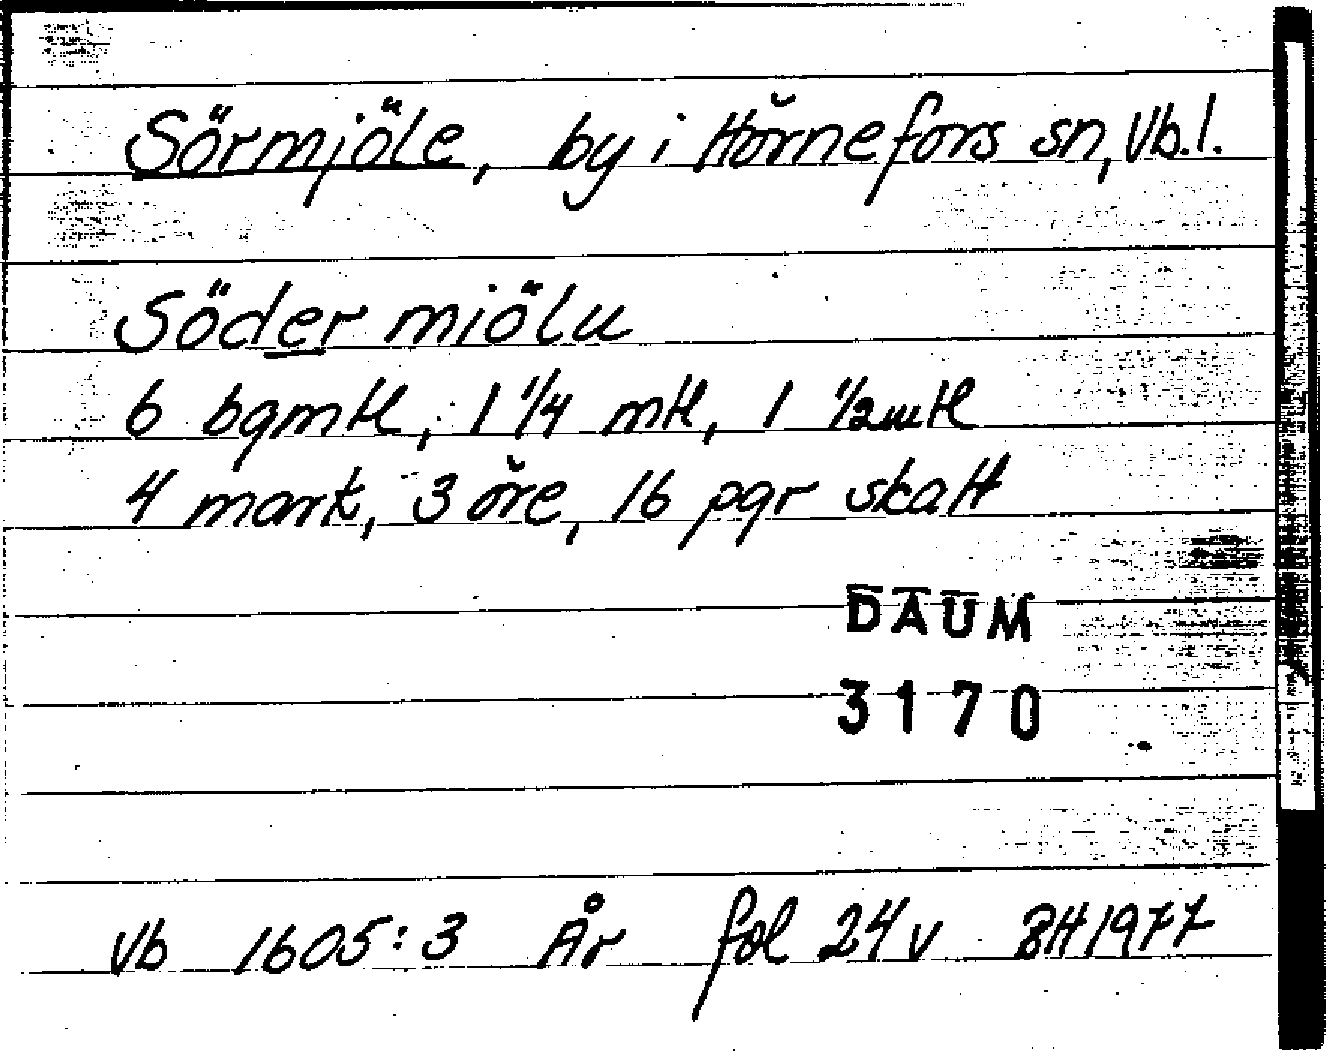 Sörmjöle, by i Hörnefors sn, Vb.l.
Söder miölu
6 bgmtl, 1 1/4 mtl, 1 1/2mtl
4 mark, 3 öre, 16 pgr skatt
DAUM
3170
Vb 1605:3 År fol 24v BH1977